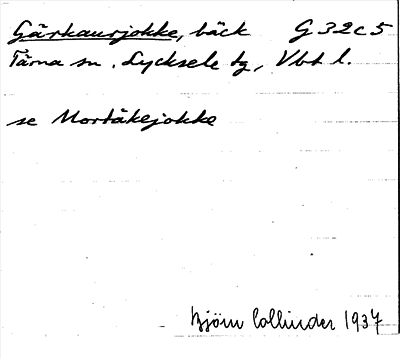 Gärkaurjokke, bäck G 32 c 5
Tärna sn. Lycksele tg, Vbt l.
se Mortåkejokke
Björn Collinder 1937